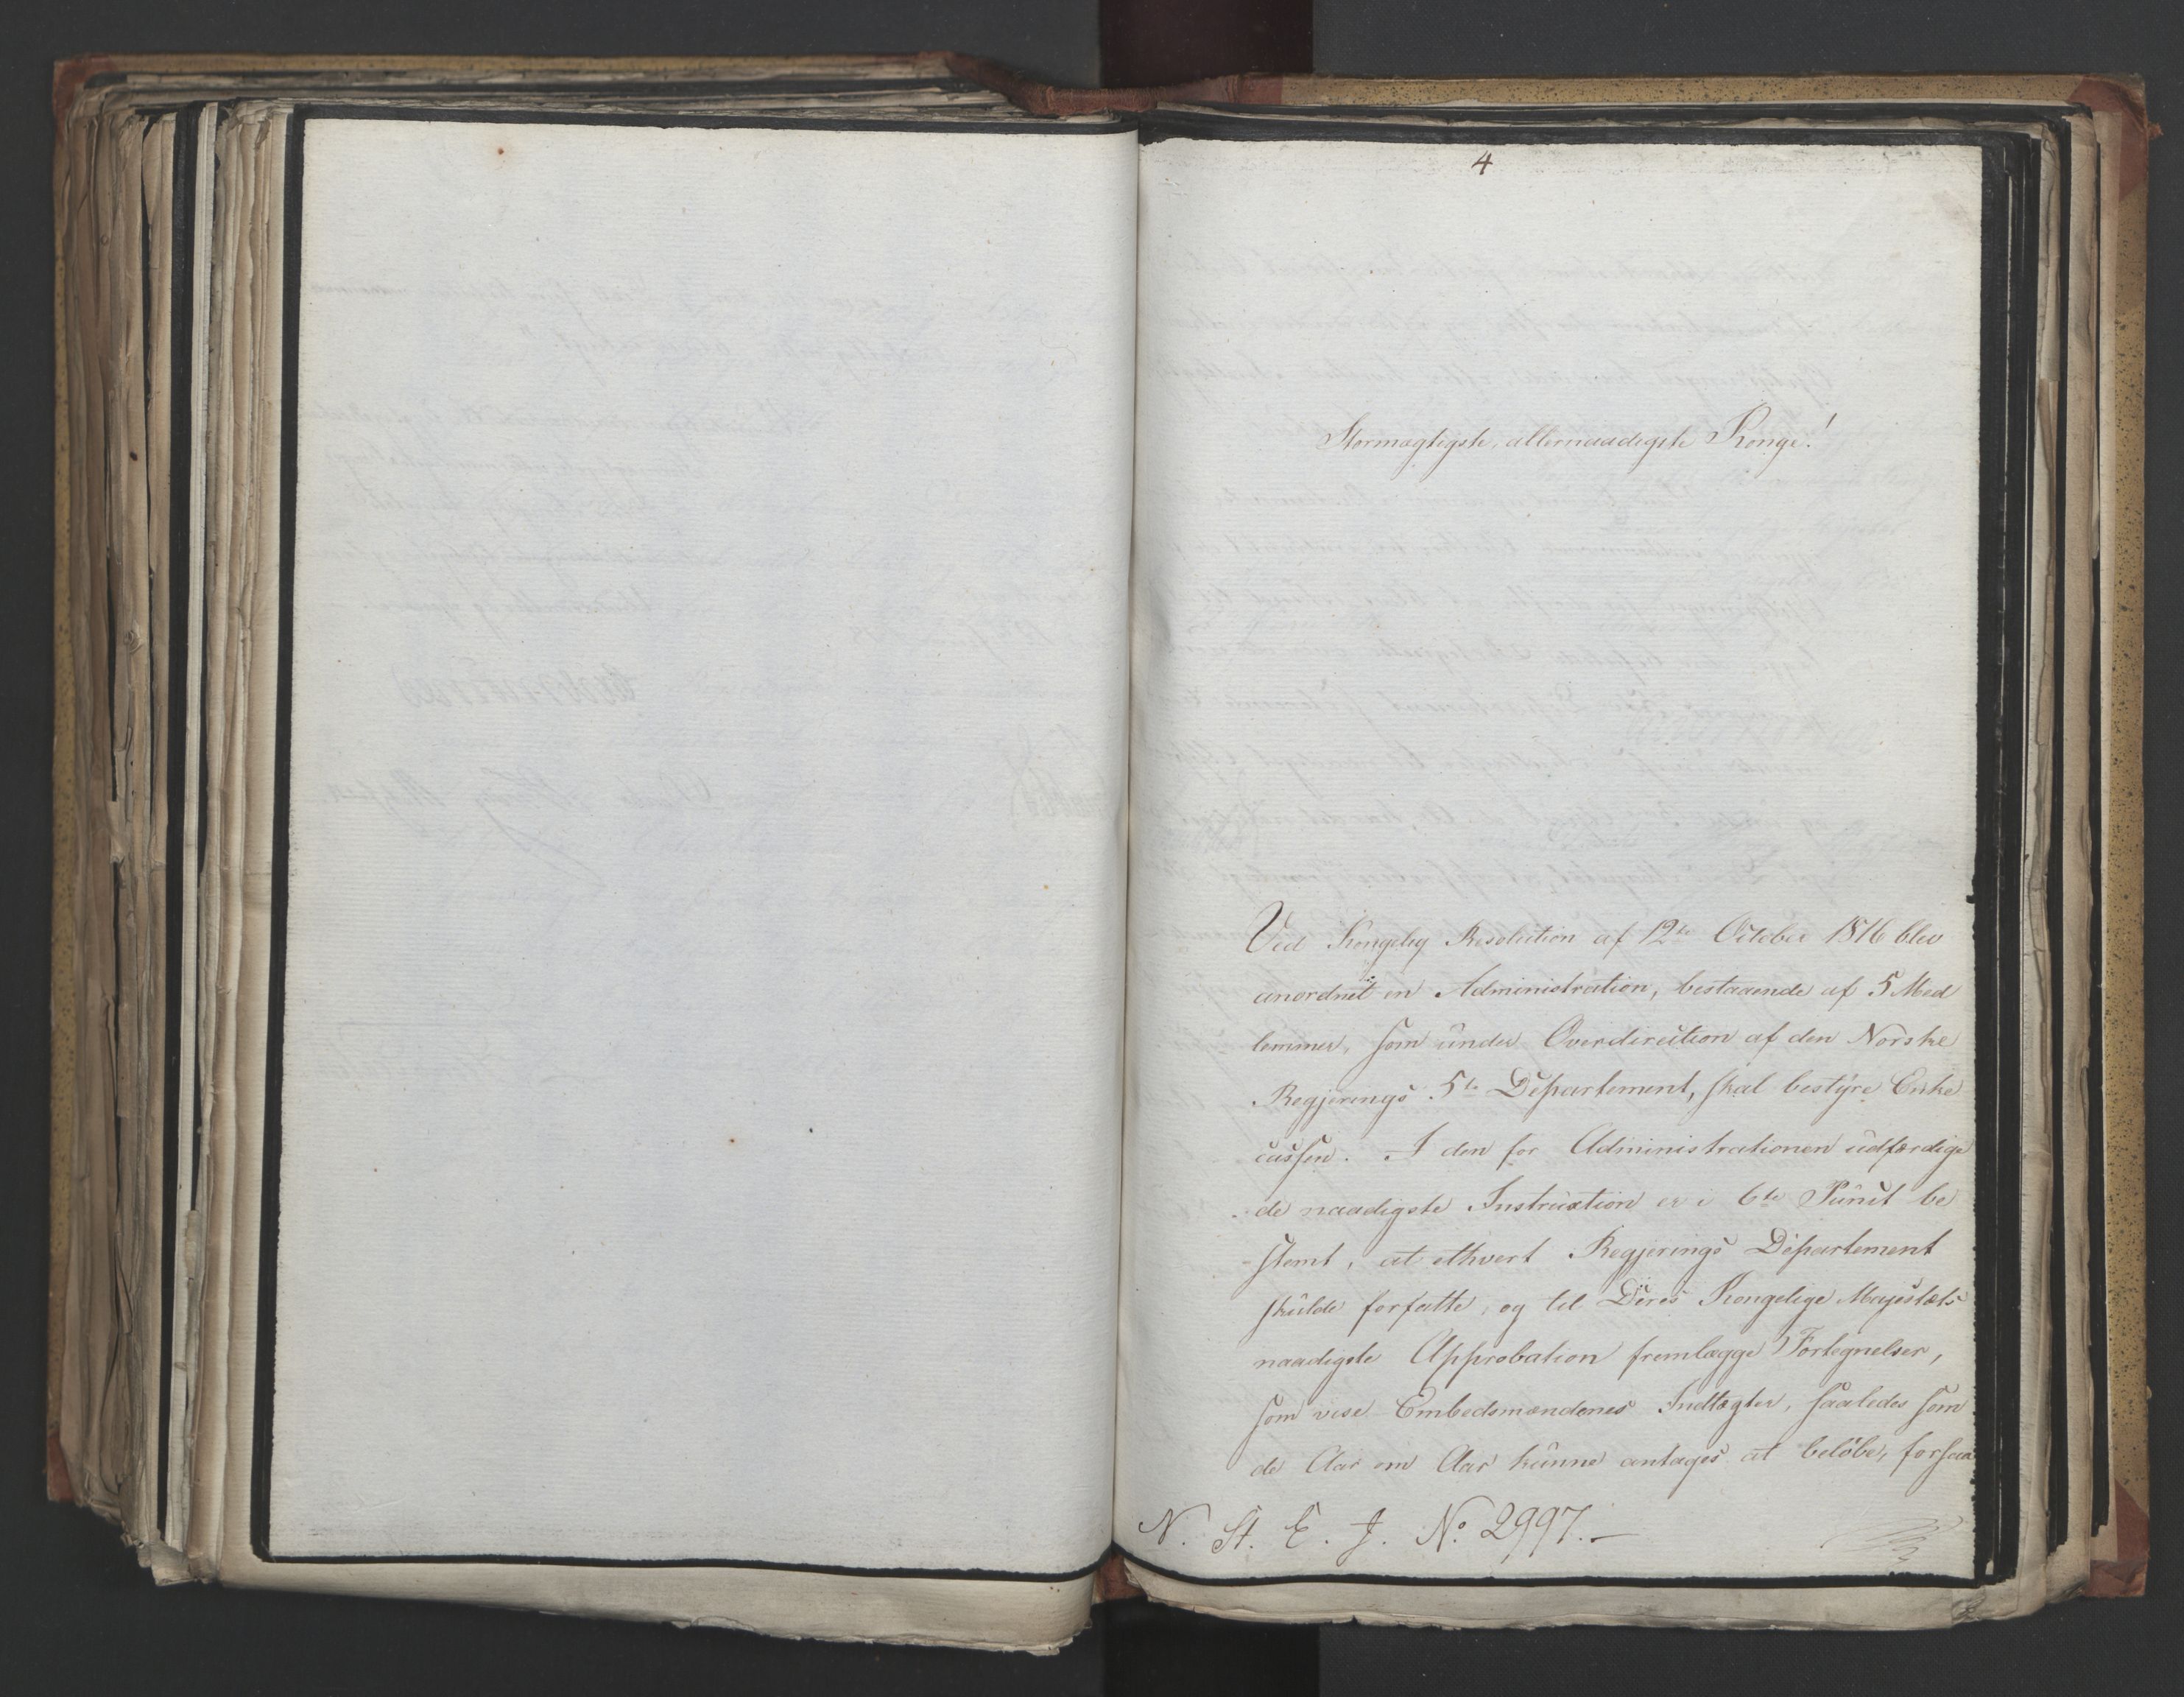 4
Stormægtigste, allernaadigste Konge!
Ved Kongelig Resolution af 12te October 1816 blev
anordnet en Administration, bestaaende af 5 Med
lemmer, som under Overdirection af den Norske
Regjerings 5te Departement, skal bestyre Enke
cassen. I den for Administrationen udfærdige
de naadigste Instruction er i 6te Punct be
stemt, at ethvert Regjerings Departement
skulde forfatte, og til Deres Kongelige Majestæts
naadigste Approbation fremlægge Fortegnelser,
som vise Embedsmændenes Indtægter, saaledes som
de Aar om Aar kunne antages at beløbe, forsaa
N. St. E. J. No. 2997.-